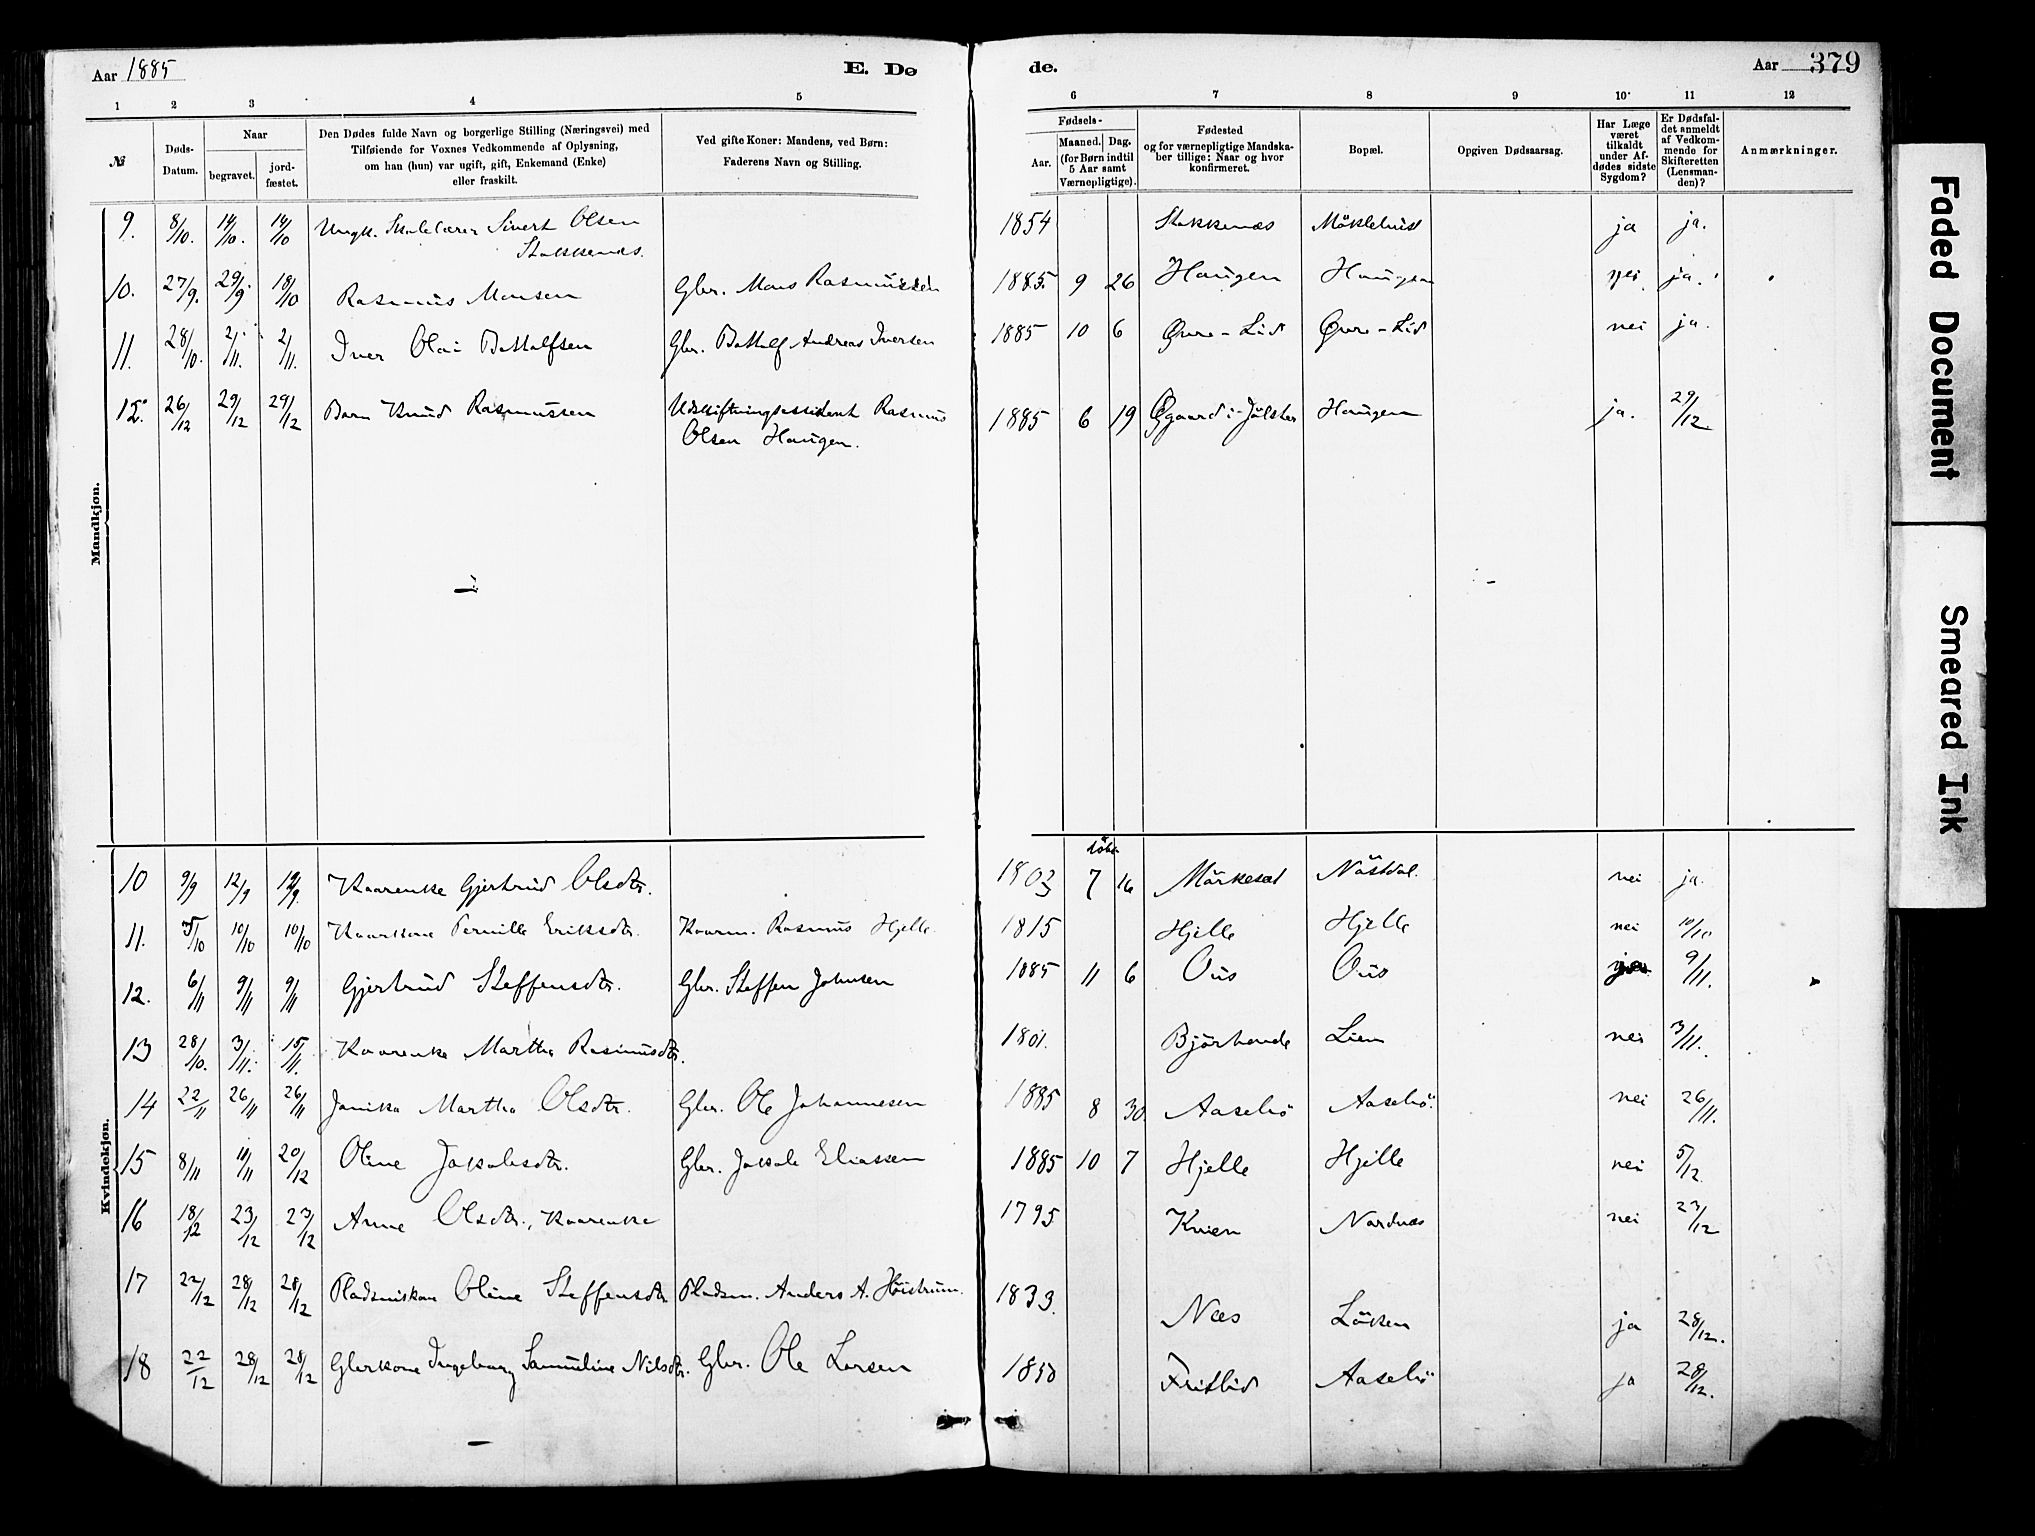 Aar 1885
E. Dø
de.
Aar 379
1 2 3 4 5 6 7 8 9 10 11 12
№
Døds-Datum.
Naar
begravet.
jord-fæstet.
Den Dødes fulde Navn og borgerlige Stilling (Næringsvei) med
Tilføiende for Voxnes Vedkommende af Oplysning,
om han (hun) var ugift, gift, Enkemand (Enke)
eller fraskilt.
Ved gifte Koner: Mandens, ved Børn:
Faderens Navn og Stilling.
Fødsels-
Aar.
Maaned. Dag.
(for Børn indtil
5 Aar samt
Værnepligtige).
Fødested
og for værnepligtige Mandska-
ber tillige: Naar og hvor
konfirmeret.
Bopæl.
Opgiven Dødsaarsag.
Har Læge
været
tilkaldt
under Af-
dødes sidste
Sygdom?
Er Dødsfal-
det anmeldt
af Vedkom-
mende for
Skifteretten
(Lensman-
den)?
Anmærkninger.
Mandkjøn.
9. 8/10. 14/10. 14/10 Ungk. Skolelærer Sivert Olsen 1854 Stokkenæs Möklebust ja ja.
Stokkenæs.
10. 27/9. 29/9 18/10 Rasmus Monsen Gbr. Mons Rasmussen 1885. 9 26 Haugen Haugen nei. ja.
11. 28/10. 2/11. 2/11. Iver Olai Bottolfsen Gbr. Bottolf Andreas Iversen 1885 10 6 Øvre-Lid Øvre-Lid nei ja.
12. 26/12 29/12 29/12 Barn Knud Rasmussen Udskiftningsassistent Rasmus 1885 6 19 Øgaard i Jølster Haugen ja. 29/12
Olsen Haugen.
Kvindekjøn.
10 9/9 12/9 12/9. Kaarenke Gjertrud Olsdtr. 1803 7 16 Mörkesæt Nöstdal. nei ja.
11. 5/10 10/10 10/10 Kaarkone Pernille Eriksdtr. Kaarm. Rasmus Hjelle. 1815 Hjelle Hjelle nei 10/10
12. 6/11 9/11 9/11 Gjertrud Steffensdtr. Gbr. Steffen Johnsen 1885 11 6 Ous Ous 9/11.
13 28/10. 3/11. 15/11. Kaarenke Martha Rasmusdtr. 1801. Björhovde Lien nei 3/11.
14 22/11 26/11 26/11 Janika Martha Olsdtr. Gbr. Ole Johannesen 1885 8 30. Aasebö Aasebö. nei 26/11.
15 8/11 11/11 20/12 Oline Jakobsdtr. Gbr. Jakob Eliassen 1885 10 7 Hjelle Hjelle nei 5/12.
16 18/12 23/12 23/12 Anne Olsdtr., Kaarenke 1795 Kvien Nordnæs nei 23/12
17 22/12 28/12 28/12 Pladsmiskone Oline Steffensdtr Pladsm. Anders A. 1833. Næs Löken ja 28/12.
18 22/12 28/12 28/12 Gbrkone Ingeborg Samueline Nilsdtr. Gbr. Ole Larsen Aasebö ja 28/12.
Faded Document
Smeared Ink